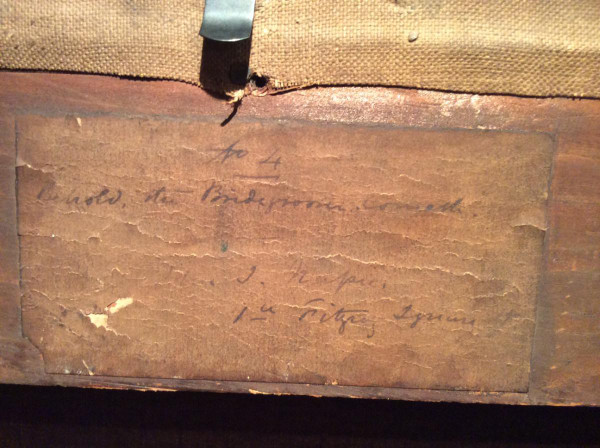 No 4
Behold, the Bridegroom cometh.
J. Napier.
Fitzroy Square